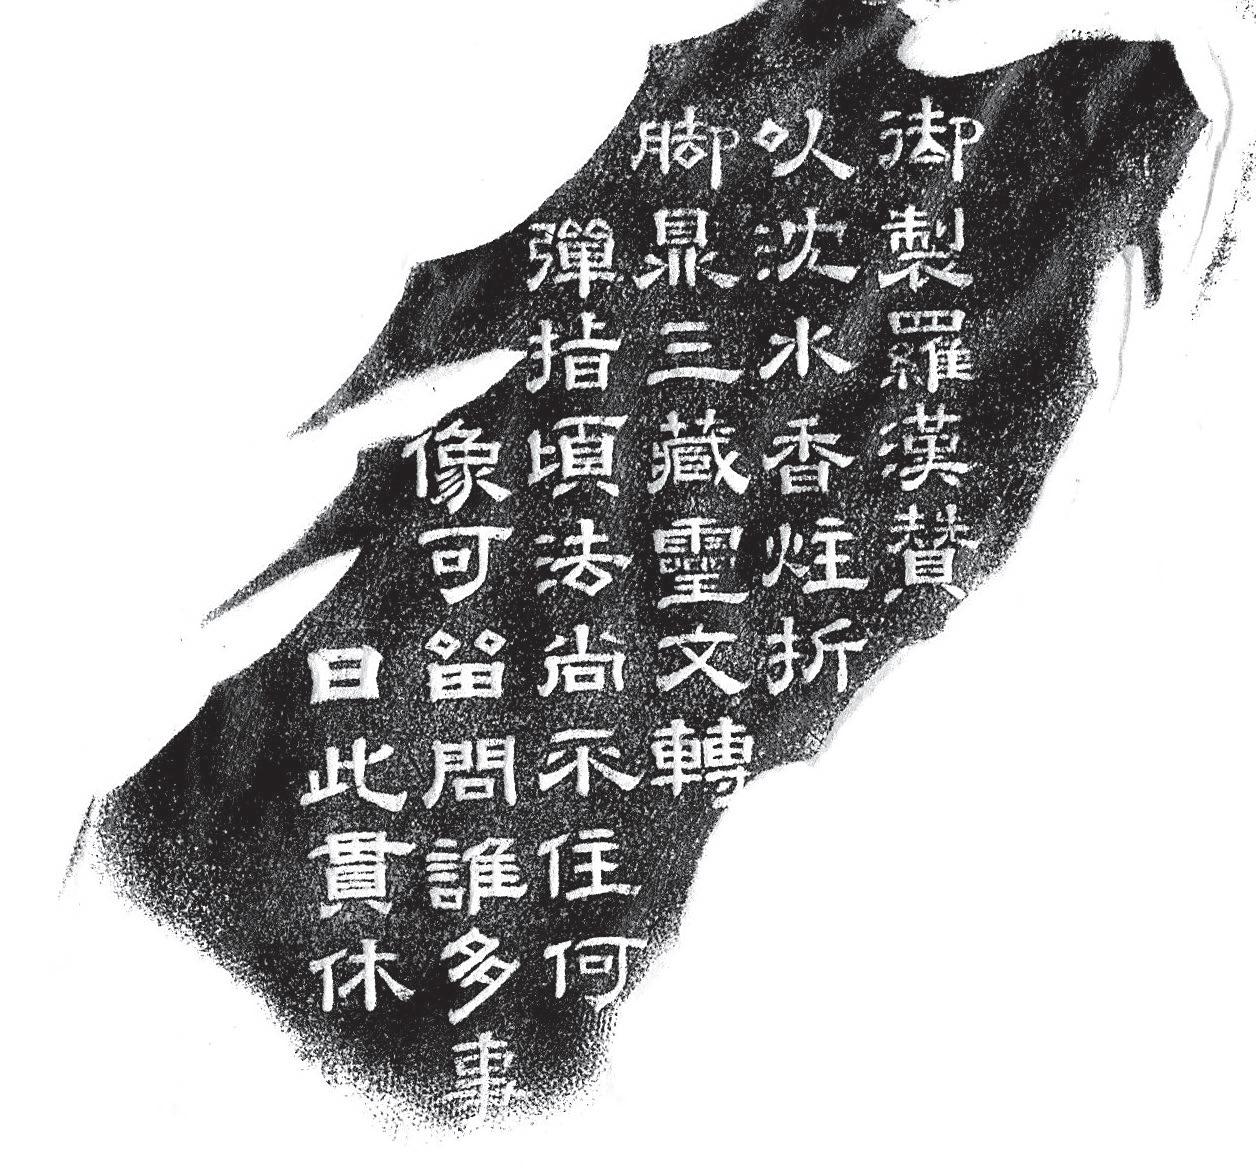 御製羅漢贊
以沈水香炷折
脚鼎三藏靈文轉
彈指頃法尚不住何
像可留問誰多事
曰此貫休